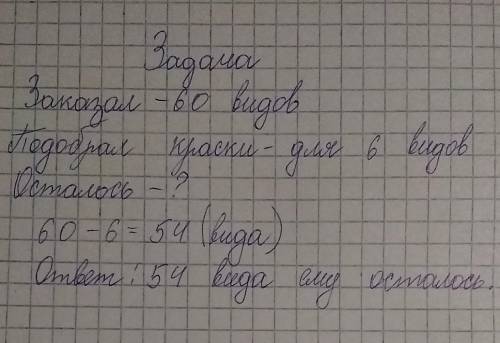 Задача
Заказал - 60 видов
Подобрал краски - для 6 видов
Осталось - ?
60 - 6 = 54 (вида)
Ответ: 54 вида ему осталось.